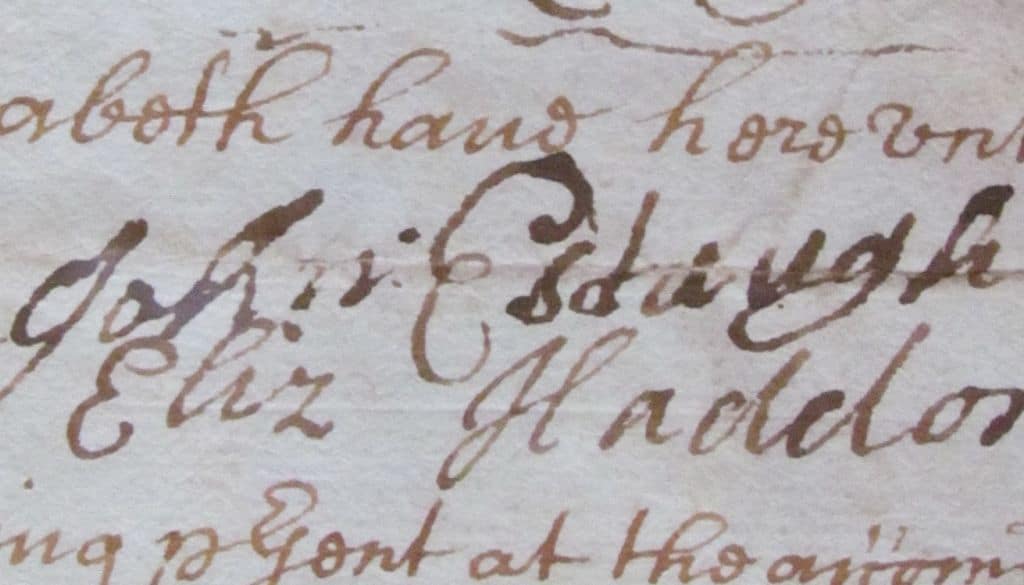 abeth have herevnt
John Estaugh
Eliz Haddon
ing pesent at the